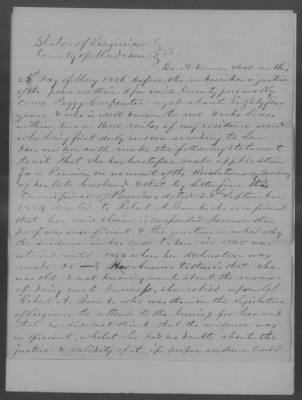 State of Virginia
County of Madison } SS.
Be it known that on this
day of May 1856 before the subscriber a justice
of the peace within & for said County personally
came Peggy Carpenter aged about Eighty four
years & who is well known to me & who lives
within two or three miles of my residence
who being first duly sworn according to law
does on her oath make the following statement
to wit that she has heretofore made application
for a Pension on account of the Revolutionary services
of her late husband & that by letter from the
Commissioner of Pensions dated 23rd September
1854 directed to Robert A. she is informed
that her said claim is suspended because the
proof was insufficient & the question is asked why
the evidence in her case taken in was
retained until when her declaration was
made &c Her answer to this is that she
was old & not knowing much about the manner
of doing such business, she relied upon Col
Robert A. who was then in the Legislature
of Virginia to attend to the business for her and
that he did not think that the evidence was
sufficient, whilst he had no doubt about the
justice & validity of it, if proper evidence could